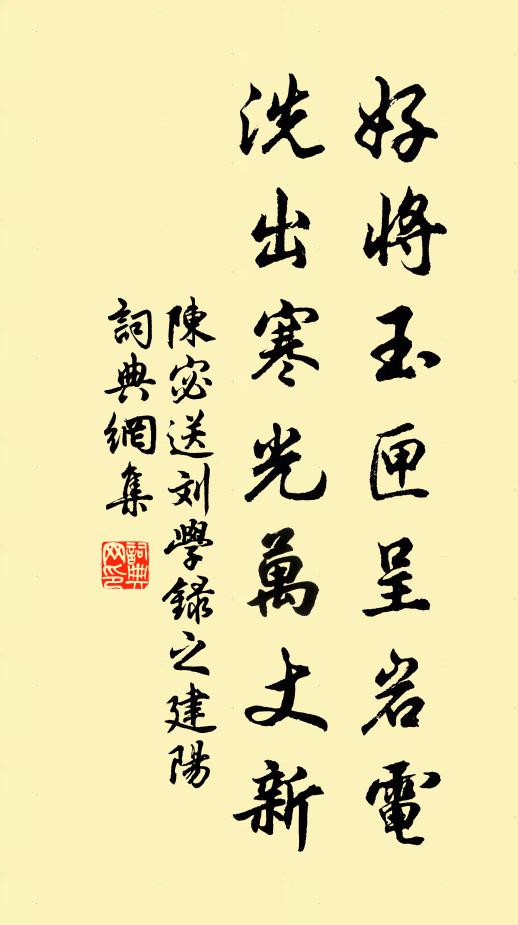 好將玉匣呈岩電
洗出寒光萬丈新
陳宓送刘學録之建陽
詞典網集
詞典網印